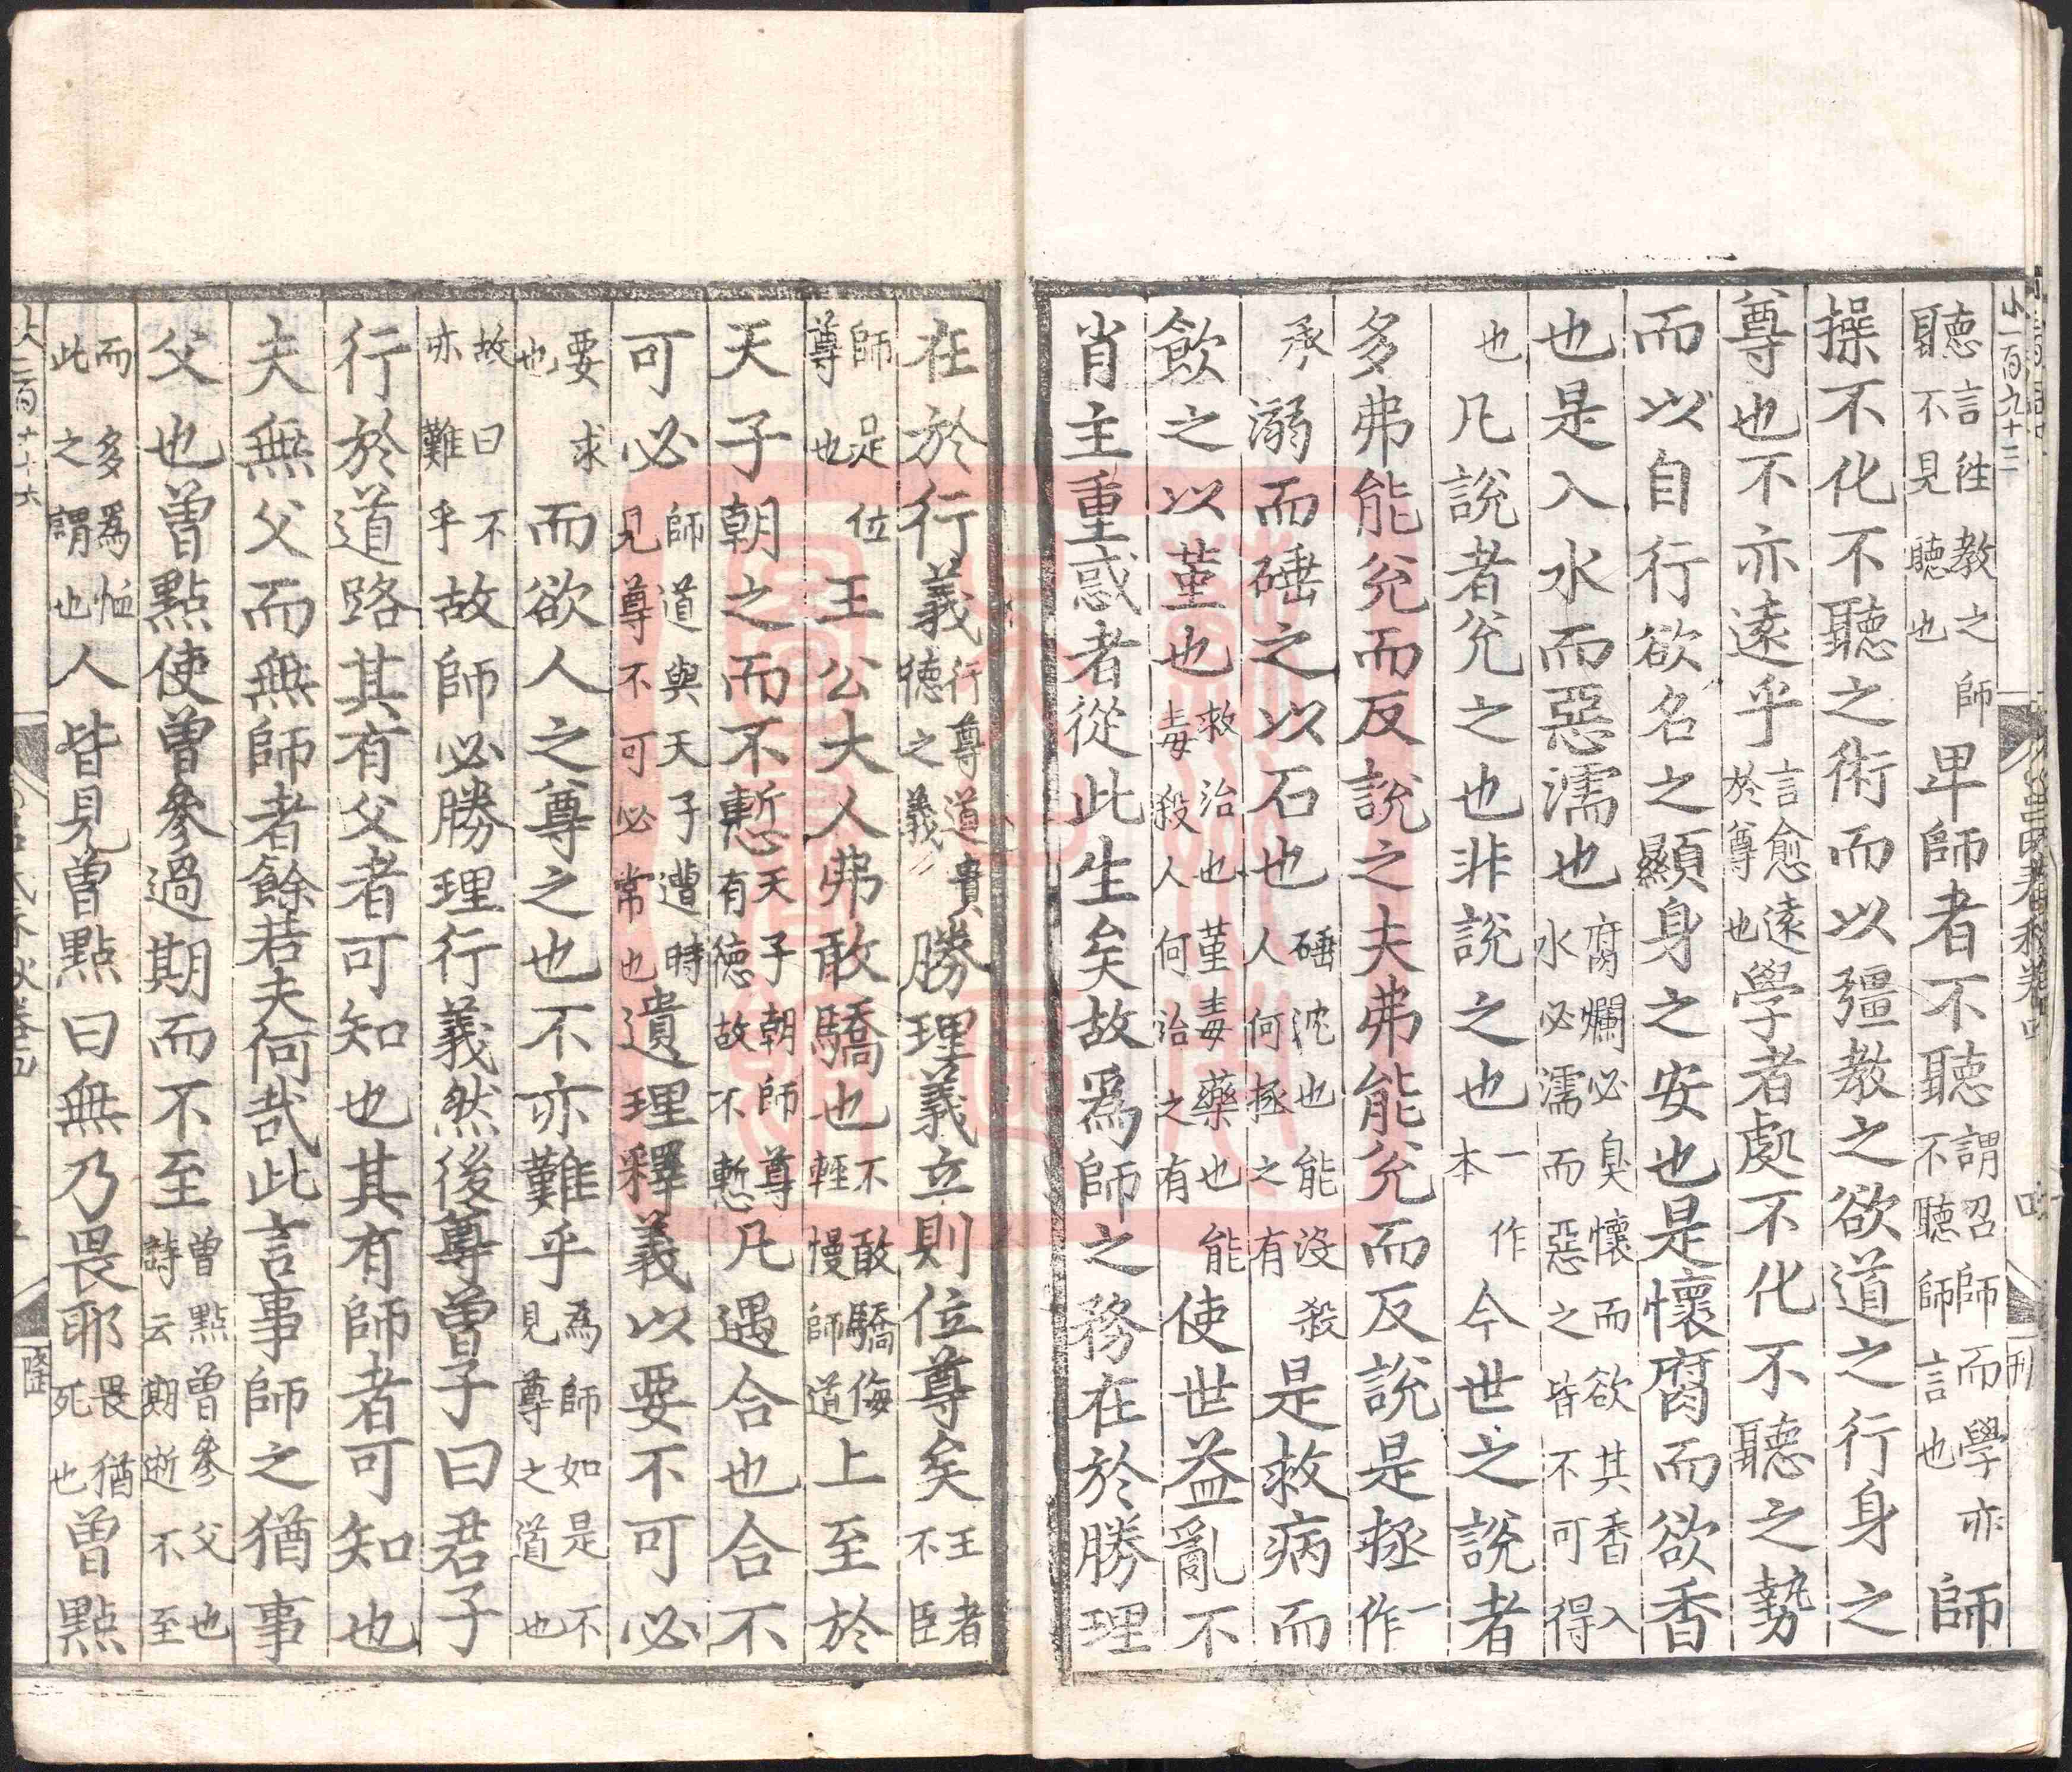 小一百九十三
聽言往教之師不見聽也卑師者不聽謂召師而學亦不聽師言也師
操不化不聽之術而以彊教之欲道之行身之
尊也不亦遠乎言愈遠於尊也學者處不化不聽之勢
而以自行欲名之顯身之安也是懷腐而欲香
也是入水而惡濡也腐爛必臭懷而欲其香入水必濡而惡之皆不可得
也凡說者兊之也非說之也一本作今世之說者
多弗能兊而反說之夫弗能兊而反說是拯一作
承溺而硾之以石也硾沈也能没殺人何拯之有是救病而
飲之以堇也救治也堇毒藥也能毒殺人何治之有使世益亂不
肖主重惑者從此生矣故爲師之務在於勝理
在於行義行尊道貴德之義勝理義立則位尊矣王者不臣
師足位尊也王公大人弗敢驕也不敢驕侮輕慢師道上至於
天子朝之而不慙天子朝師尊有德故不慙凡遇合也合不
可必師道與天子遭時見尊不可必常也遺理釋義以要不可必
要求也而欲人之尊之也不亦難乎爲師如是不見尊之道也
故曰不亦難乎故師必勝理行義然後尊曾子曰君子
行於道路其有父者可知也其有師者可知也
夫無父而無師者餘若夫何哉此言事師之猶事
父也曾點使曾參過期而不至曾點曾參父也詩云期逝不至
而多爲恤此之謂也人皆見曾點曰無乃畏耶畏猶死也曾點
隆